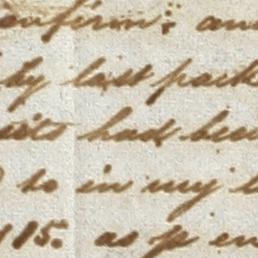 confirm: an
by last pack
had bee
to in my
115. as p en